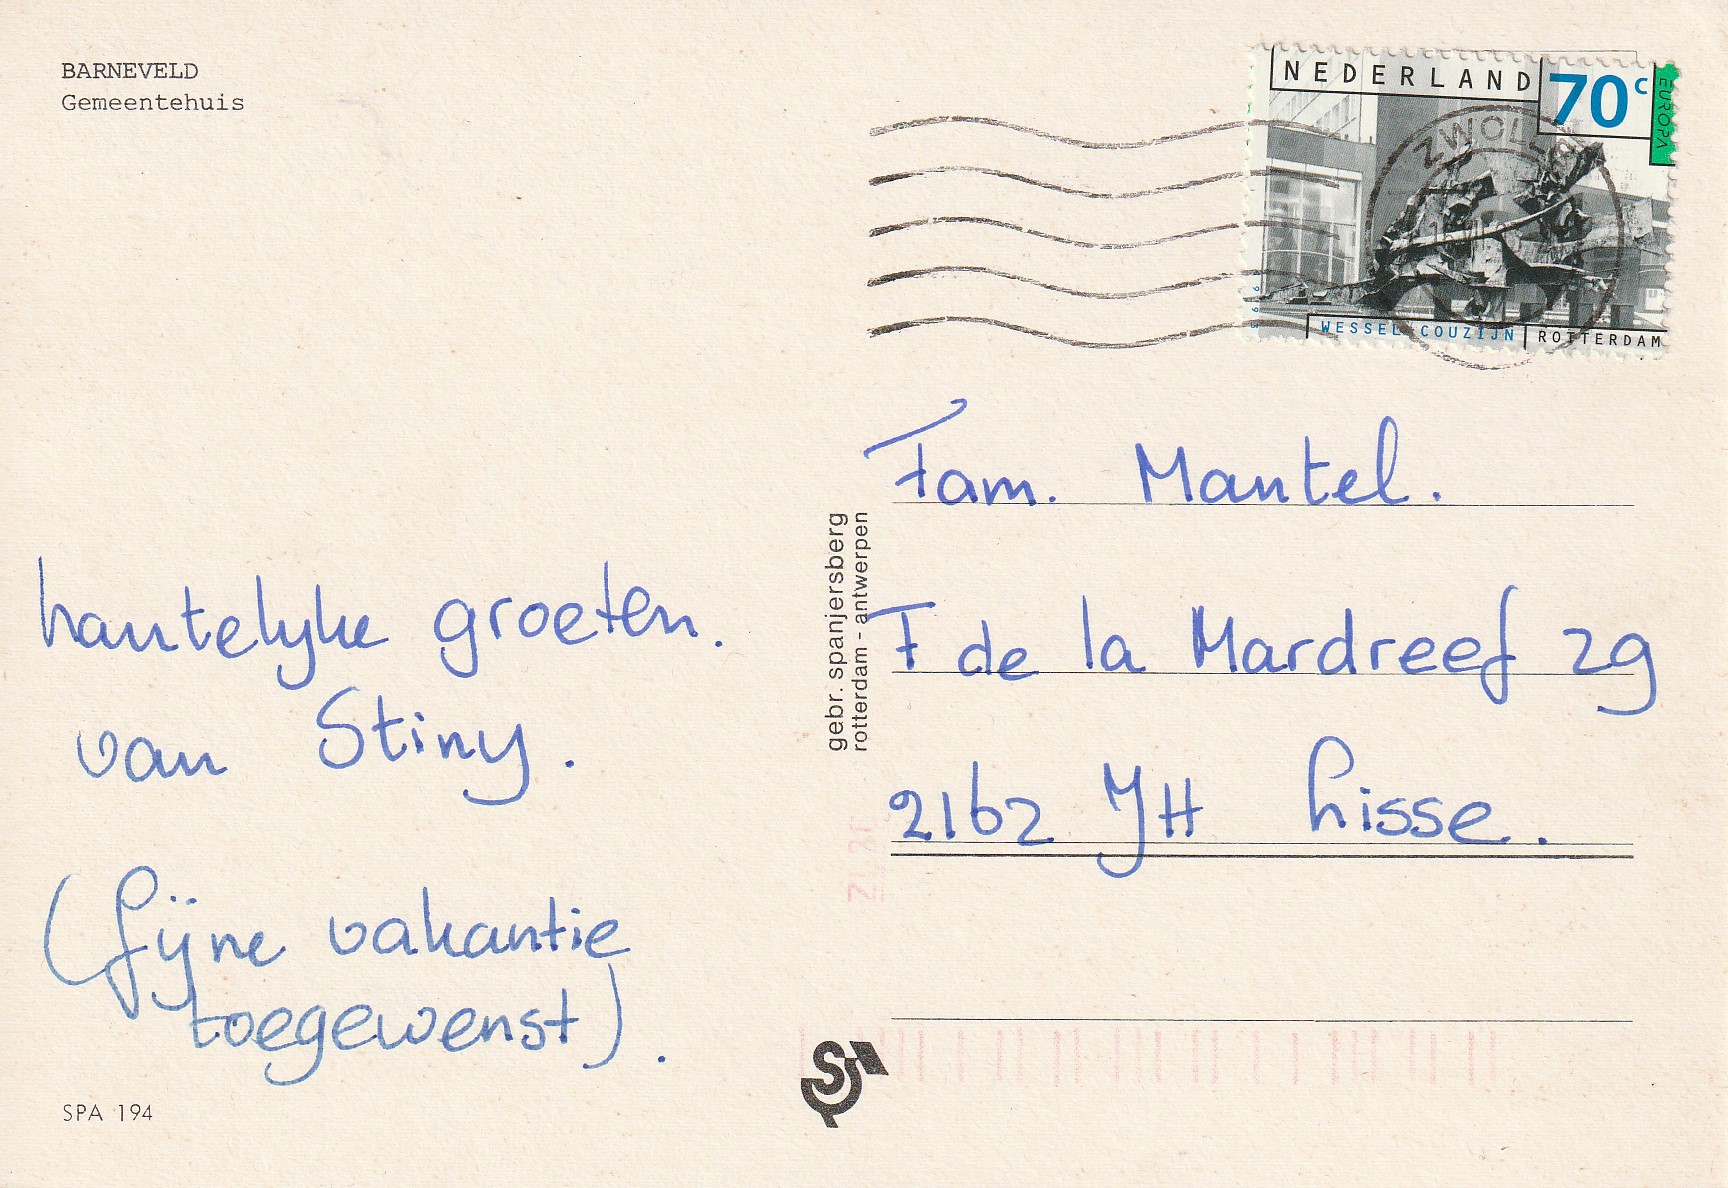 BARNEVELD
Gemeentehuis
NEDERLAND
70c
EUROPA
ZWOLLE
1993
WESSEL COUZIJN
ROTTERDAM
hartelyke groeten.
van Stiny.
(fijne vakantie
toegewenst).
SPA 194
gebr. spanjersberg
rotterdam - antwerpen
Fam. Mantel.
F de la Mardreef 29
2162 JH Lisse.